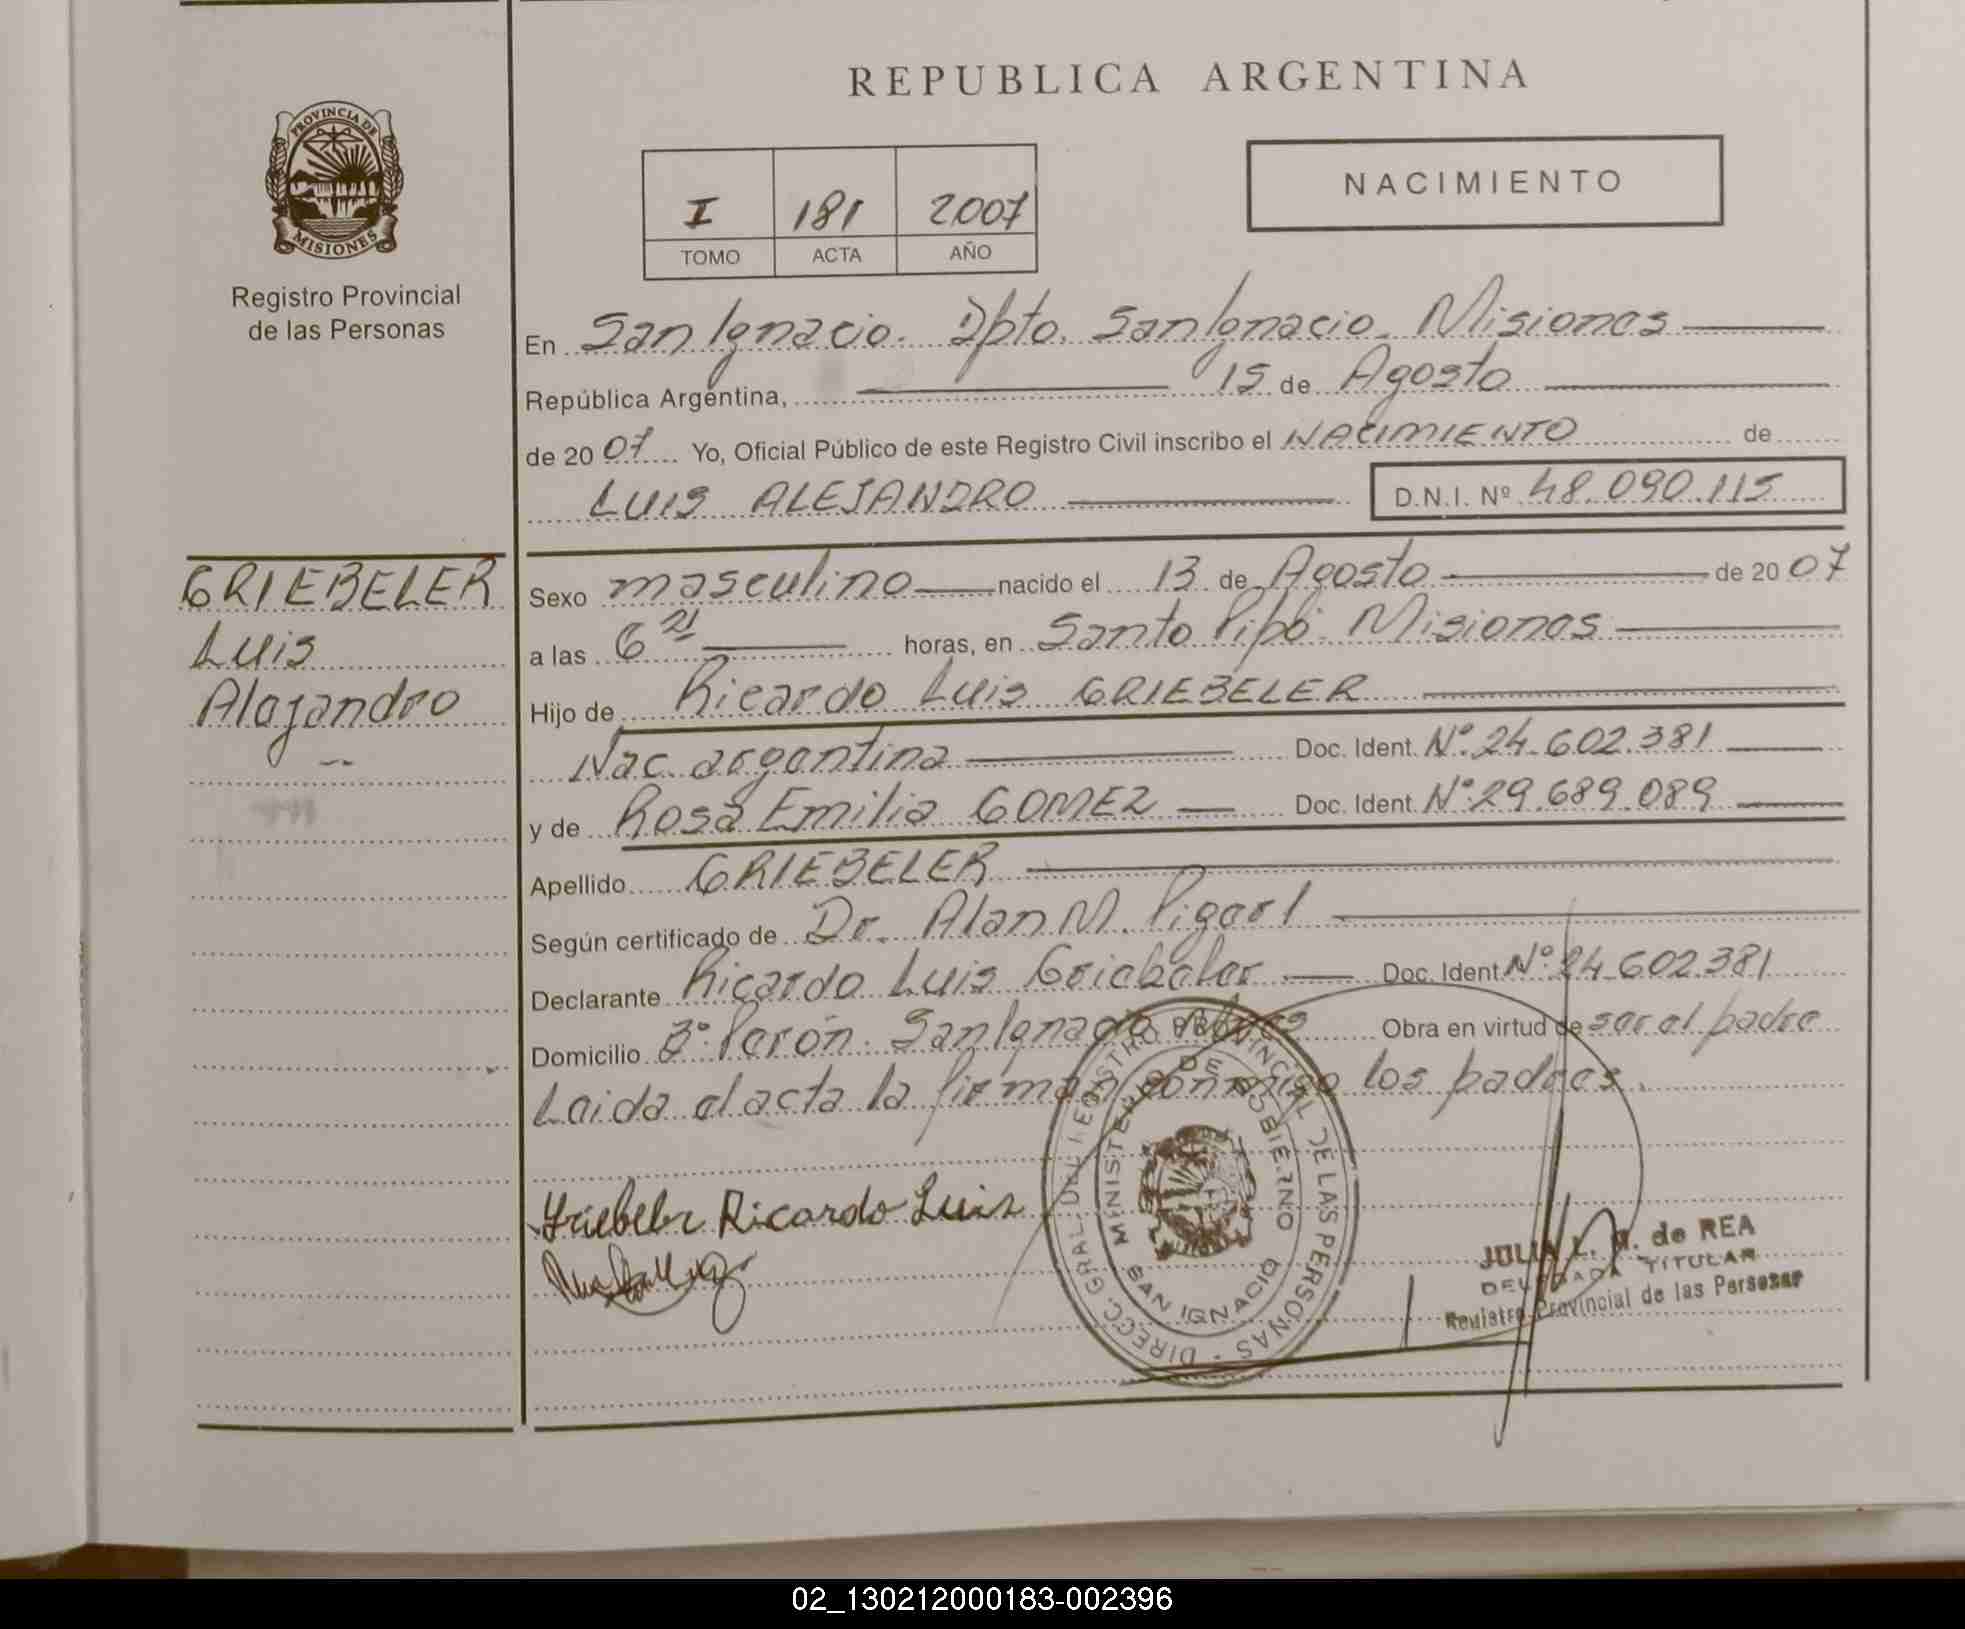 REPUBLICA ARGENTINA
PROVINCIA DE
MISIONES
Registro Provincial
de las Personas
I 181 2007
TOMO ACTA AÑO
NACIMIENTO
En San Ignacio. Dpto. San Ignacio. Misiones
República Argentina, 15 de Agosto
de 2007 Yo, Oficial Público de este Registro Civil inscribo el NACIMIENTO de
LUIS ALEJANDRO D.N.I. Nº 48.090.115
GRIEBELER
Luis
Alejandro
Sexo masculino nacido el 13 de Agosto de 2007
a las 6 21 horas, en Santo Pipó. Misiones
Hijo de Ricardo Luis GRIEBELER
Nac. argentina Doc. Ident. Nº 24.602.381
y de Rosa Emilia GOMEZ Doc. Ident. Nº 29.689.089
Apellido GRIEBELER
Según certificado de Dr. Alan M.
Declarante Ricardo Luis Griebeler Doc. Ident. Nº 24.602.381
Domicilio Bº Perón. San Ignacio Obra en virtud de ser el padre
Leida el acta la firman conmigo los padres.
Griebeler Ricardo Luis
DIRECC. GRAL. DEL REGISTRO PROVINCIAL DE LAS PERSONAS
MINISTERIO DE GOBIERNO
SAN IGNACIO
JULIA L. de REA
DELEGADA TITULAR
Registro Provincial de las Personas
02_130212000183-002396